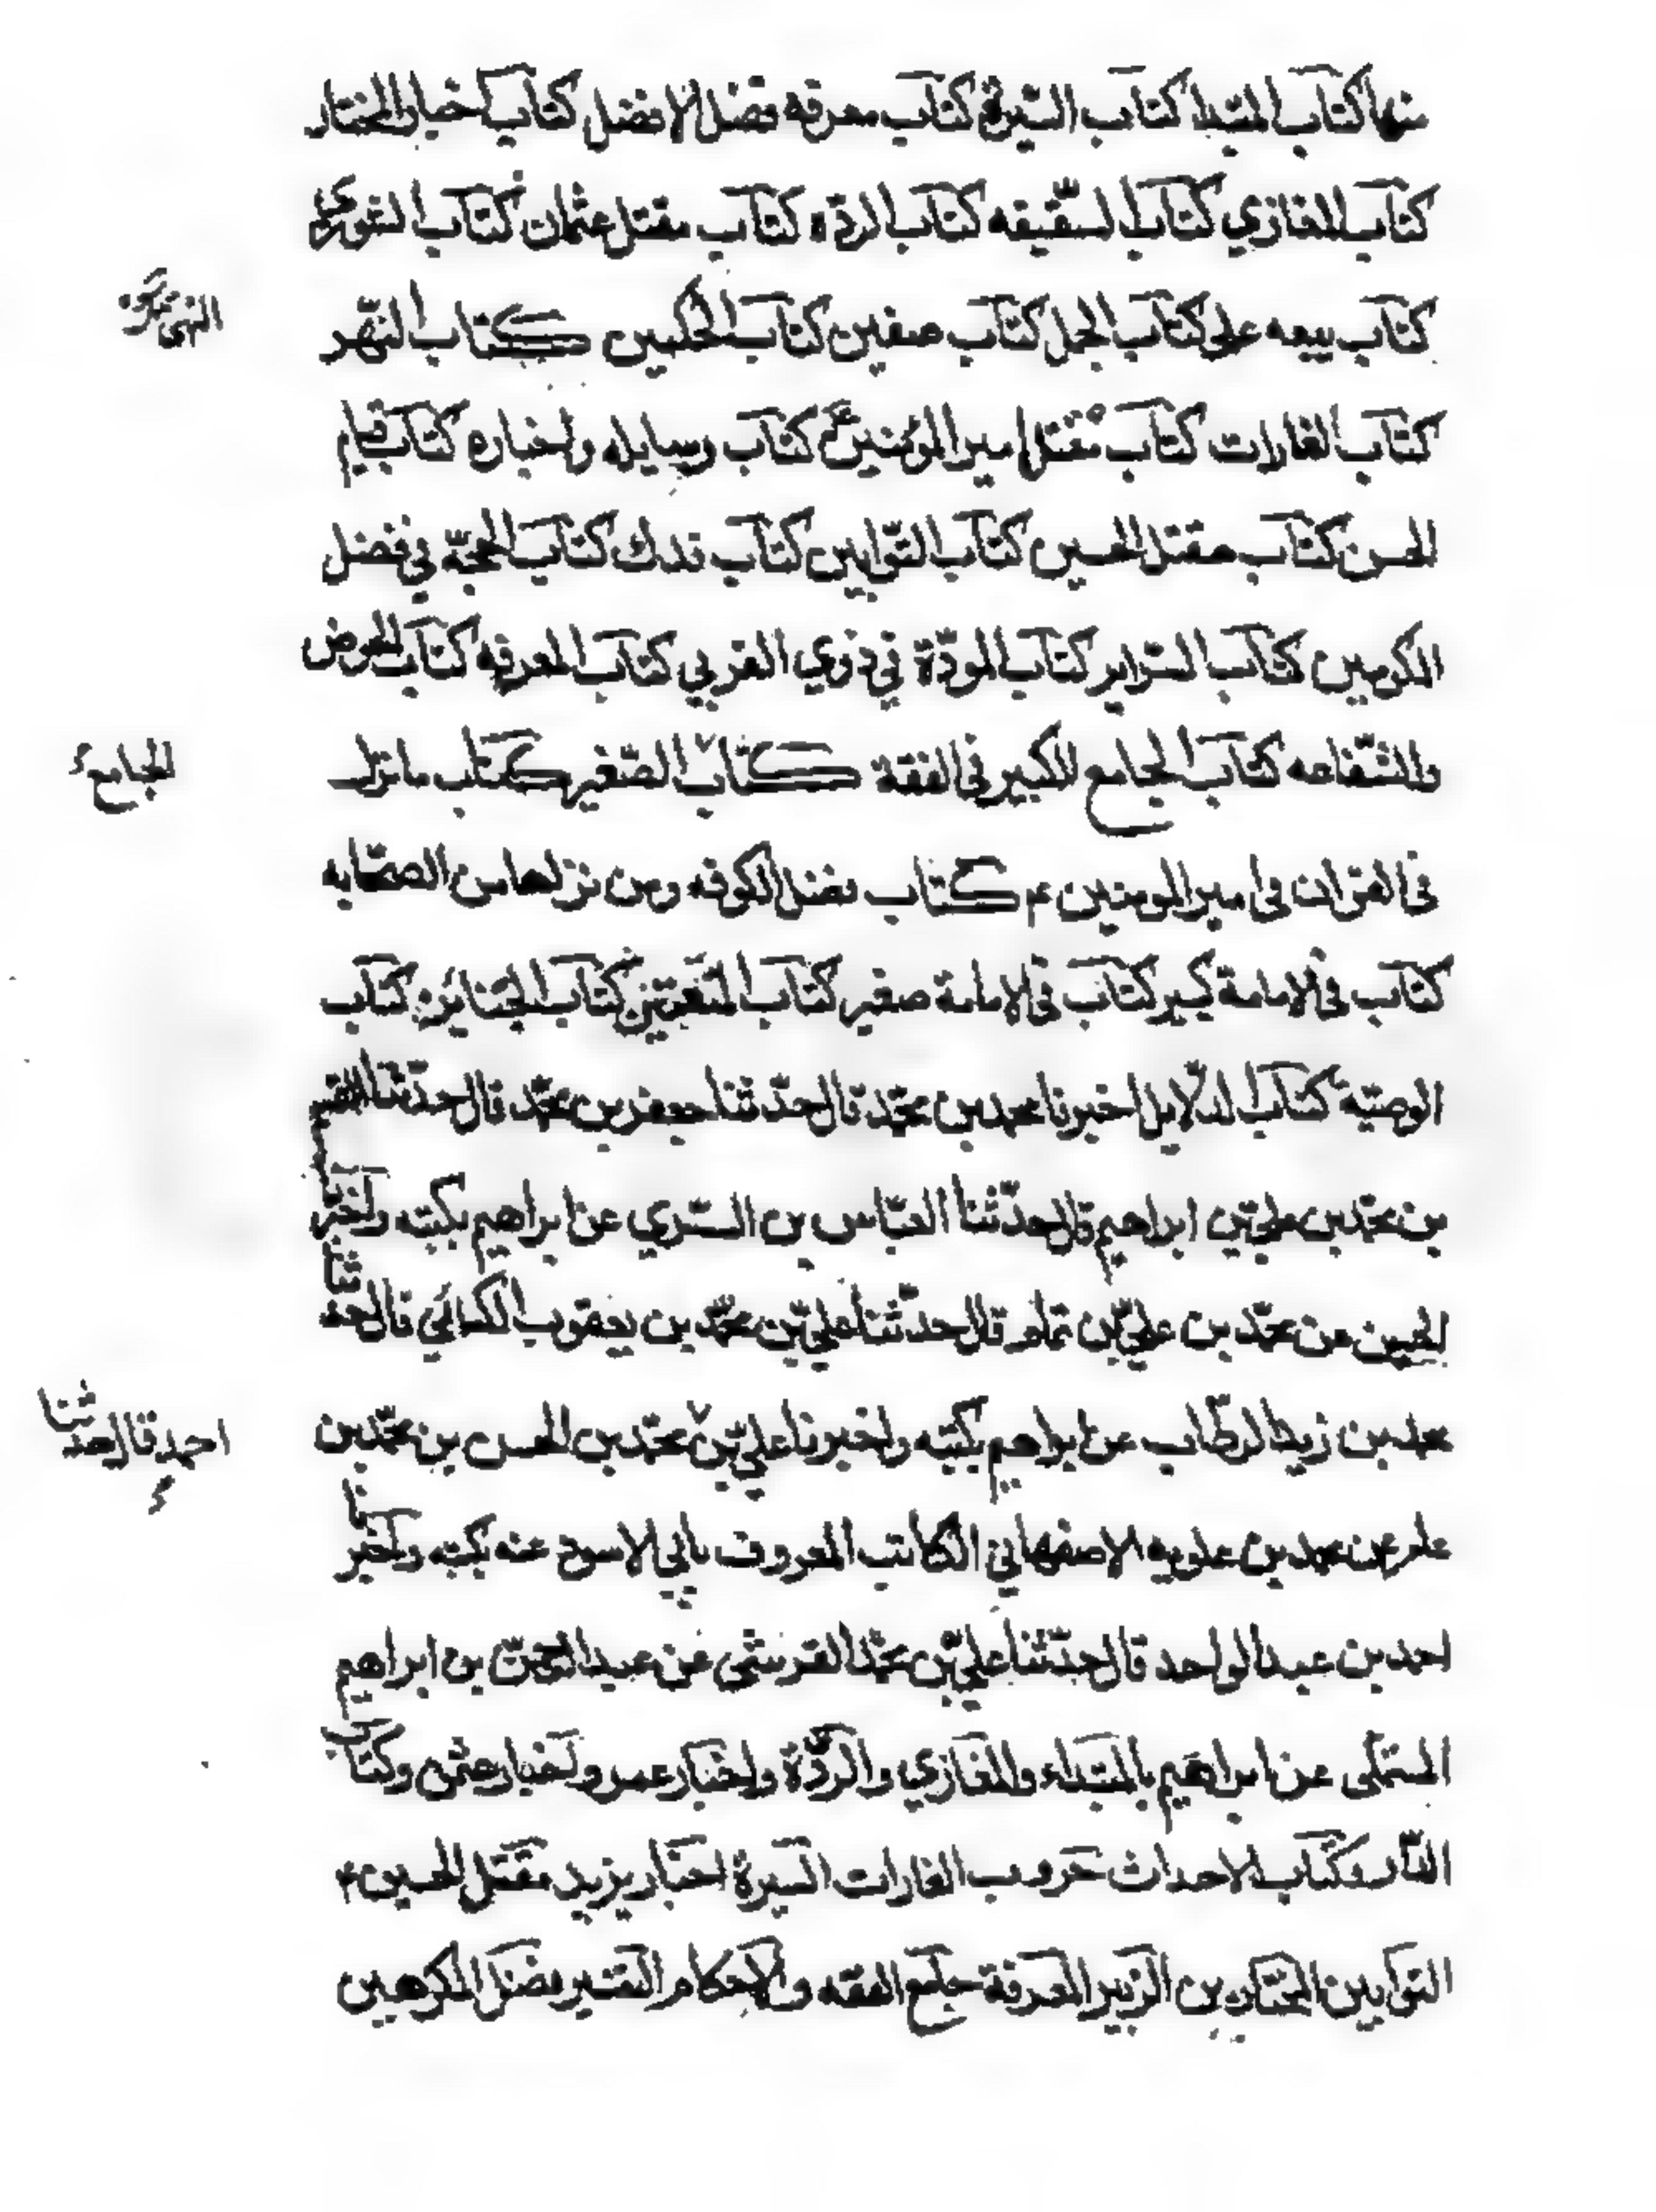 منها كتاب المبتدا كتاب السيرة كتاب معرفه فضل الافضل كتاب اخبار المختار
كتاب المغازي كتاب السّقيفه كتاب الردّه كتاب مقتل عثمان كتاب الشورى
كتاب بيعه على كتاب الجمل كتاب صفين كتاب الحكمين كتاب النّهر
كتاب الغارات كتاب مقتل امير المؤمنين ع كتاب رسايله واخباره كتاب قيام
الحسن كتاب مقتل الحسين كتاب التّوابين كتاب فدك كتاب الحجّة في فضل
المكرمين كتاب السّراير كتاب المودّة في ذوي القربي كتاب المعرفه كتاب الحوض
والشّفاعه كتاب الجامع الكبير في الفقة كتاب الصّغير كتاب ما نزل
الجامع
في القران في امير المومنين ع كتاب فضل الكوفه ومن نزلها من الصّحابه
كتاب في الامامة كبير كتاب في الامامة صغير كتاب المتعتين كتاب الجنائز كتاب
الوصيّة كتاب الدّلايل اخبرنا محمد بن محمّد قال حدّثنا جعفر بن محمّد قال حدّثنا القسم
بن محمّد بن علي بن ابراهيم قال حدّثنا العبّاس بن السّري عن ابراهيم بكتبه واخبرنا
الحسين عن محمّد بن علي بن تمام قال حدّثنا علي بن محمّد بن يعقوب الكسائي قال حدثنا
محمد بن زيد الرطّاب عن ابراهيم بكتبه واخبرنا علي بن محمّد بن الحسن بن محمّد بن
احمد قال حدثنا
عامر عن محمد بن علويه الاصفهاني الكاتب المعروف بابي الاسود عنه بكتبه واخبرنا
احمد بن عبد الواحد قال حدّثنا علي بن محمّد القرشي عن عبد الرحمن بن ابراهيم
المستملى عن ابراهيم بالمبتداء والمغازي والردّة واخبار عمر واخبار عثمن وكتاب
الدّار وكتاب الاحداث حروب الغارات السيرة اخبار يزيد مقتل الحسين ع
التوابين المختار بن الزبير المعرفة جامع الفقه والاحكام التفسير فضل المكرمين